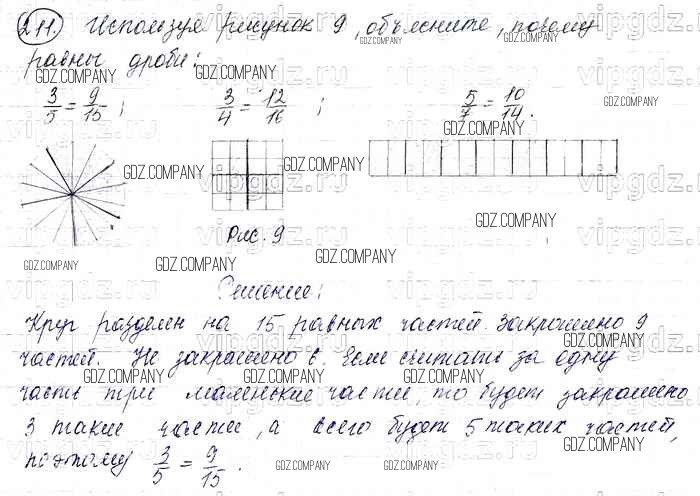 211. Используя рисунок 9, объясните, почему
равны дроби:
3/5 = 9/15; 3/4 = 12/16; 5/7 = 10/14.
Рис. 9
Решение:
Круг разделен на 15 равных частей. Закрашено 9
частей. Не закрашено 6. Если считать за одну
часть три маленькие части, то будет закрашено
3 такие части, а всего будет 5 таких частей,
поэтому 3/5 = 9/15.
vipgdz.ru
GDZ.COMPANY